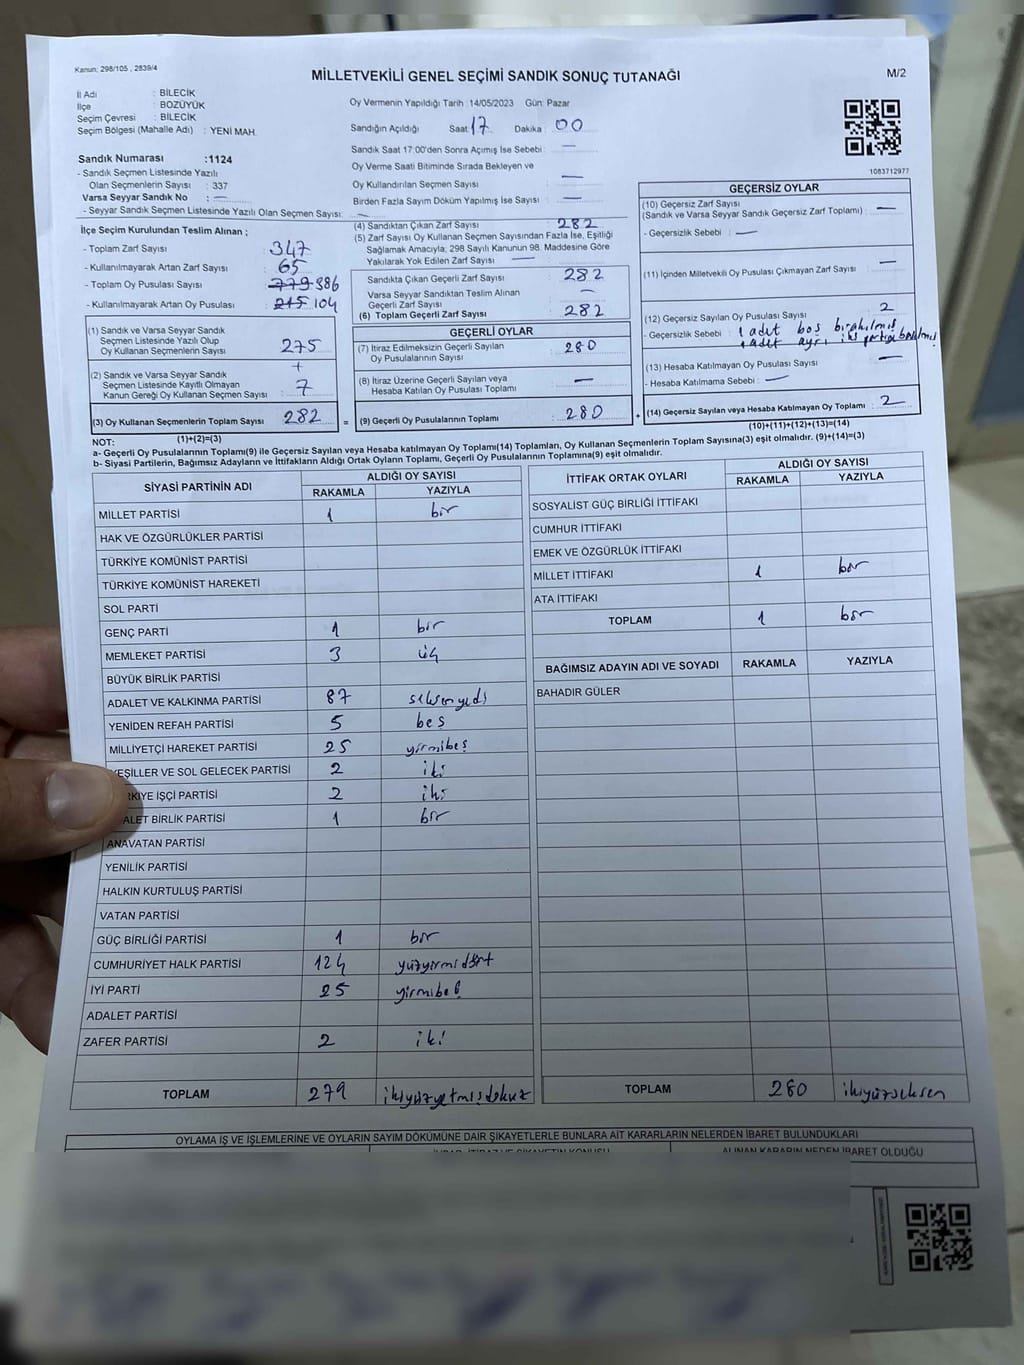 Kanun: 298/105 , 2839/4
MİLLETVEKİLİ GENEL SEÇİMİ SANDIK SONUÇ TUTANAĞI
M/2
İl Adı : BİLECİK
İlçe : BOZÜYÜK
Seçim Çevresi : BİLECİK
Seçim Bölgesi (Mahalle Adı) : YENİ MAH.
Sandık Numarası :1124
- Sandık Seçmen Listesinde Yazılı
Olan Seçmenlerin Sayısı : 337
Varsa Seyyar Sandık No : —
- Seyyar Sandık Seçmen Listesinde Yazılı Olan Seçmen Sayısı: —
Oy Vermenin Yapıldığı Tarih :14/05/2023 Gün: Pazar
Sandığın Açıldığı Saat 17 Dakika : 00
Sandık Saat 17:00'den Sonra Açımış İse Sebebi : —
Oy Verme Saati Bitiminde Sırada Bekleyen ve
Oy Kullandırılan Seçmen Sayısı —
Birden Fazla Sayım Döküm Yapılmış İse Sayısı —
1083712977
İlçe Seçim Kurulundan Teslim Alınan ;
- Toplam Zarf Sayısı : 347
- Kullanılmayarak Artan Zarf Sayısı : 65
- Toplam Oy Pusulası Sayısı : 779 386
- Kullanılmayarak Artan Oy Pusulası : 215 104
(1) Sandık ve Varsa Seyyar Sandık
Seçmen Listesinde Yazılı Olup
Oy Kullanan Seçmenlerin Sayısı : 275
+
(2) Sandık ve Varsa Seyyar Sandık
Seçmen Listesinde Kayıtlı Olmayan
Kanun Gereği Oy Kullanan Seçmen Sayısı : 7
(3) Oy Kullanan Seçmenlerin Toplam Sayısı : 282 =
(1)+(2)=(3)
(4) Sandıktan Çıkan Zarf Sayısı : 282
(5) Zarf Sayısı Oy Kullanan Seçmen Sayısından Fazla İse, Eşitliği
Sağlamak Amacıyla, 298 Sayılı Kanunun 98. Maddesine Göre
Yakılarak Yok Edilen Zarf Sayısı : —
Sandıkta Çıkan Geçerli Zarf Sayısı : 282
Varsa Seyyar Sandıktan Teslim Alınan
Geçerli Zarf Sayısı : —
(6) Toplam Geçerli Zarf Sayısı : 282
GEÇERLİ OYLAR
(7) İtiraz Edilmeksizin Geçerli Sayılan
Oy Pusulalarının Sayısı : 280
(8) İtiraz Üzerine Geçerli Sayılan veya
Hesaba Katılan Oy Pusulası Toplamı : —
(9) Geçerli Oy Pusulalarının Toplamı : 280 +
GEÇERSİZ OYLAR
(10) Geçersiz Zarf Sayısı
(Sandık ve Varsa Seyyar Sandık Geçersiz Zarf Toplamı) : —
- Geçersizlik Sebebi : —
(11) İçinden Milletvekili Oy Pusulası Çıkmayan Zarf Sayısı : —
(12) Geçersiz Sayılan Oy Pusulası Sayısı : 2
- Geçersizlik Sebebi : 1 adet boş bırakılmış
1 adet ayrı iki partiye basılmış
(13) Hesaba Katılmayan Oy Pusulası Sayısı : —
- Hesaba Katılmama Sebebi : —
(14) Geçersiz Sayılan veya Hesaba Katılmayan Oy Toplamı : 2
(10)+(11)+(12)+(13)=(14)
NOT:
a- Geçerli Oy Pusulalarının Toplamı(9) ile Geçersiz Sayılan veya Hesaba katılmayan Oy Toplamı(14) Toplamları, Oy Kullanan Seçmenlerin Toplam Sayısına(3) eşit olmalıdır. (9)+(14)=(3)
b- Siyasi Partilerin, Bağımsız Adayların ve İttifakların Aldığı Ortak Oyların Toplamı, Geçerli Oy Pusulalarının Toplamına(9) eşit olmalıdır.
SİYASİ PARTİNİN ADI
ALDIĞI OY SAYISI
RAKAMLA YAZIYLA
MİLLET PARTİSİ 1 bir
HAK VE ÖZGÜRLÜKLER PARTİSİ
TÜRKİYE KOMÜNİST PARTİSİ
TÜRKİYE KOMÜNİST HAREKETİ
SOL PARTİ
GENÇ PARTİ 1 bir
MEMLEKET PARTİSİ 3 üç
BÜYÜK BİRLİK PARTİSİ
ADALET VE KALKINMA PARTİSİ 87 seksenyedi
YENİDEN REFAH PARTİSİ 5 beş
MİLLİYETÇİ HAREKET PARTİSİ 25 yirmibeş
EŞİLLER VE SOL GELECEK PARTİSİ 2 iki
RKİYE İŞÇİ PARTİSİ 2 iki
ALET BİRLİK PARTİSİ 1 bir
ANAVATAN PARTİSİ
YENİLİK PARTİSİ
HALKIN KURTULUŞ PARTİSİ
VATAN PARTİSİ
GÜÇ BİRLİĞİ PARTİSİ 1 bir
CUMHURİYET HALK PARTİSİ 124 yüzyirmidört
İYİ PARTİ 25 yirmibeş
ADALET PARTİSİ
ZAFER PARTİSİ 2 iki
TOPLAM 279 ikiyüzyetmişdokuz
İTTİFAK ORTAK OYLARI
ALDIĞI OY SAYISI
RAKAMLA YAZIYLA
SOSYALİST GÜÇ BİRLİĞİ İTTİFAKI
CUMHUR İTTİFAKI
EMEK VE ÖZGÜRLÜK İTTİFAKI
MİLLET İTTİFAKI 1 bir
ATA İTTİFAKI
TOPLAM 1 bir
BAĞIMSIZ ADAYIN ADI VE SOYADI RAKAMLA YAZIYLA
BAHADIR GÜLER
TOPLAM 280 ikiyüzseksen
OYLAMA İŞ VE İŞLEMLERİNE VE OYLARIN SAYIM DÖKÜMÜNE DAİR ŞİKAYETLERLE BUNLARA AİT KARARLARIN NELERDEN İBARET BULUNDUKLARI
ALINAN KARARIN NEDEN İBARET OLDUĞU